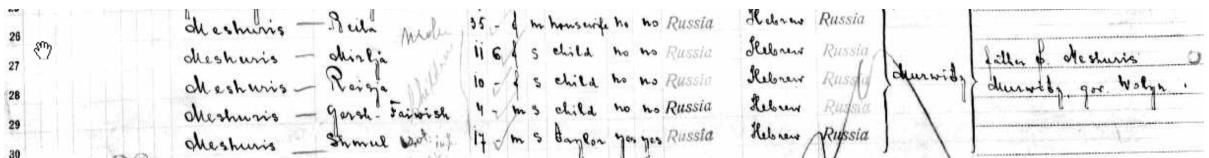 26 Meshuris — Beila 35 - f m housewife no no Russia Hebrew Russia
27 Meshuris — Mirlja 11 6 f s child no no Russia Hebrew Russia father J. Meshuris
28 Meshuris — Reisja 10 - f s child no no Russia Hebrew Russia gov. Wolyn
29 Meshuris — Gersh-Faiwish 4 - m s child no no Russia Hebrew Russia
30 Meshuris — Shmul 17 m s Taylor yes yes Russia Hebrew Russia